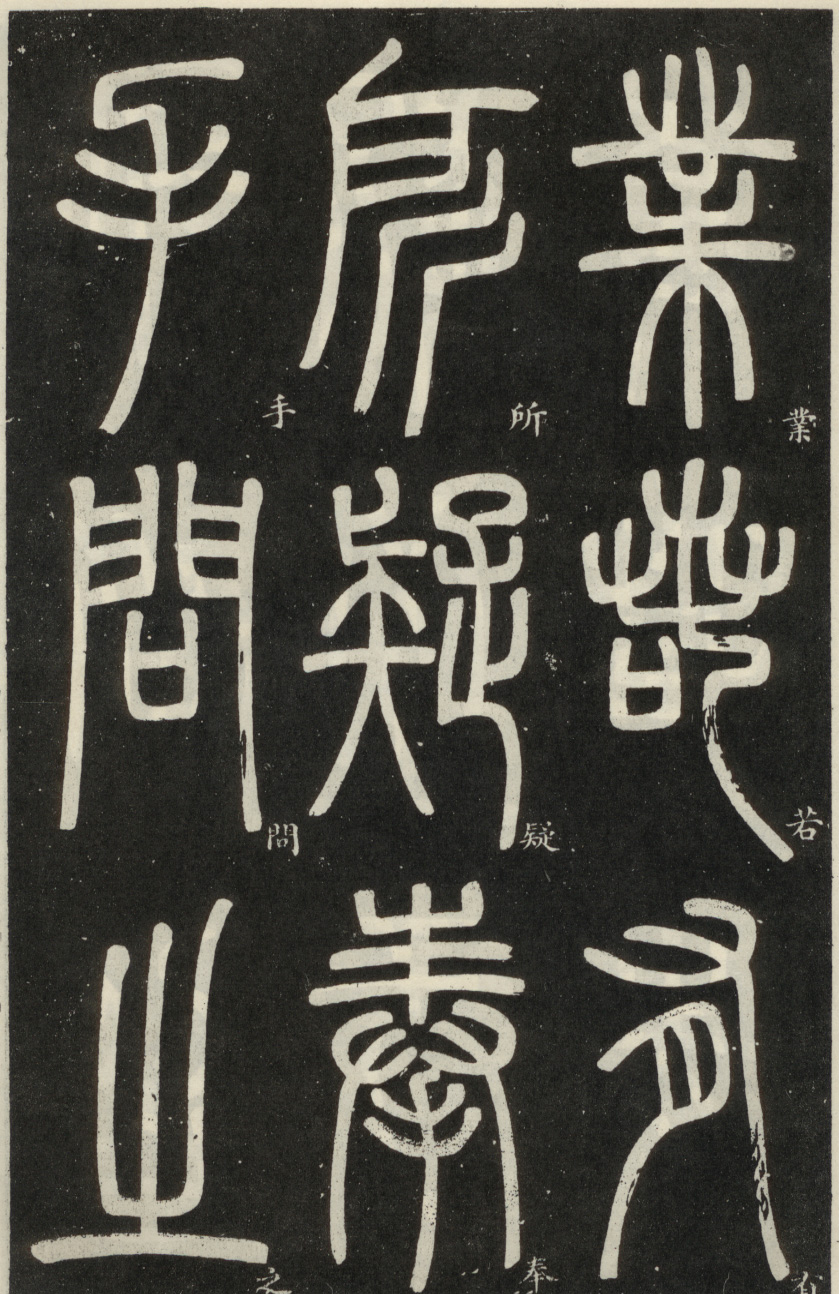 業若有
所疑奉
手問之